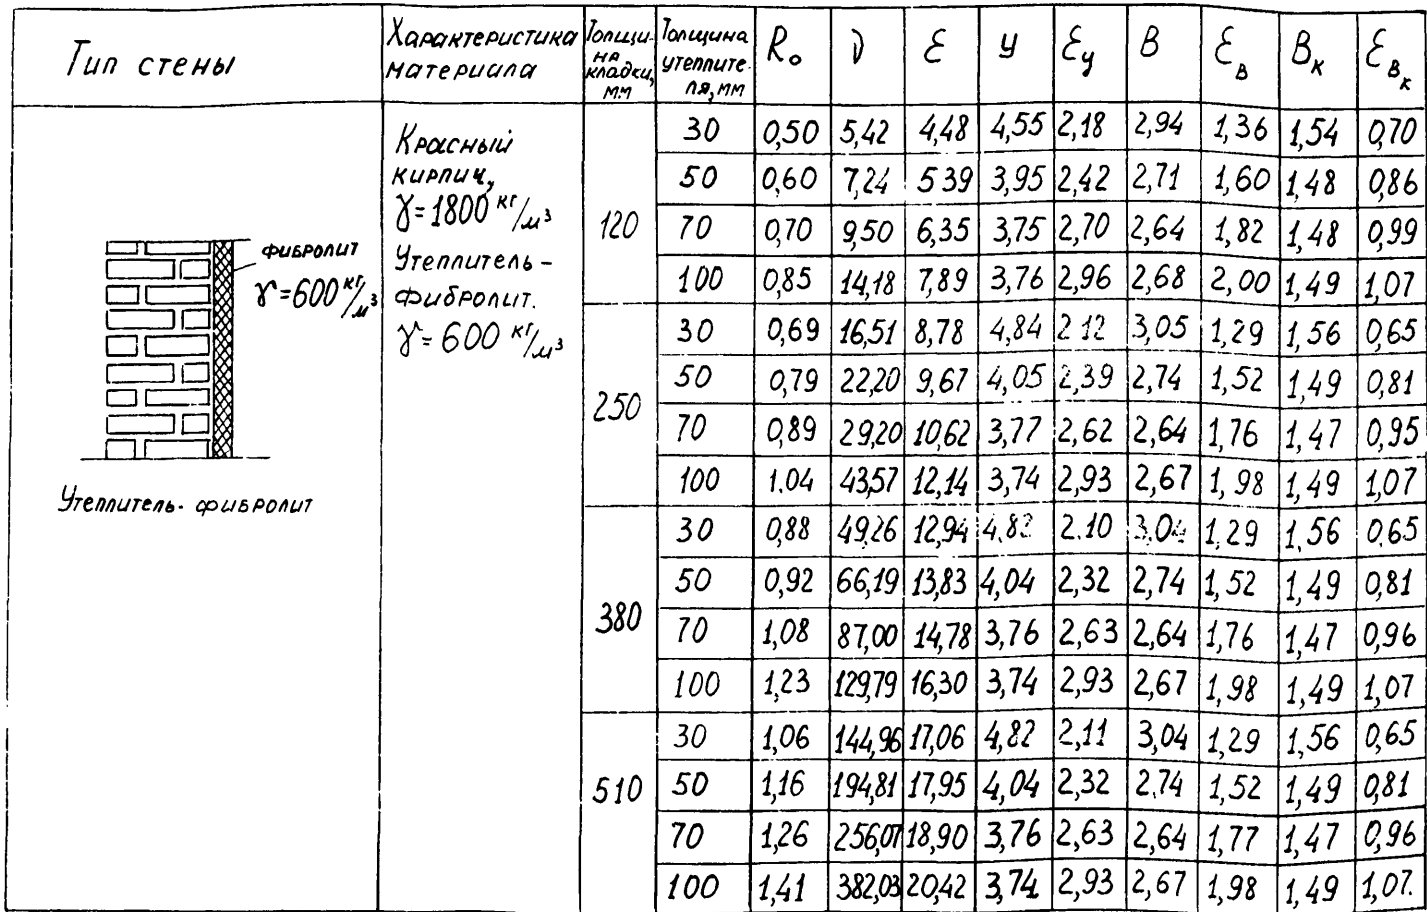 Тип стены
Характеристика материала
Толщина кладки, мм
Толщина утеплителя, мм
R₀ ν ε У ε_у В ε_в В_к ε_в_к
фибролит
γ=600 кг/м³
Утеплитель- фибролит
Красный
кирпич,
γ=1800 кг/м³
Утеплитель-
фибролит.
γ=600 кг/м³
120
30 0,50 5,42 4,48 4,55 2,18 2,94 1,36 1,54 0,70
50 0,60 7,24 5 39 3,95 2,42 2,71 1,60 1,48 0,86
70 0,70 9,50 6,35 3,75 2,70 2,64 1,82 1,48 0,99
100 0,85 14,18 7,89 3,76 2,96 2,68 2,00 1,49 1,07
250
30 0,69 16,51 8,78 4,84 2 12 3,05 1,29 1,56 0,65
50 0,79 22,20 9,67 4,05 2,39 2,74 1,52 1,49 0,81
70 0,89 29,20 10,62 3,77 2,62 2,64 1,76 1,47 0,95
100 1.04 43,57 12,14 3,74 2,93 2,67 1,98 1,49 1,07
380
30 0,88 49,26 12,94 2.10 3,04 1,29 1,56 0,65
50 0,92 66,19 13,83 4,04 2,32 2,74 1,52 1,49 0,81
70 1,08 87,00 14,78 3,76 2,63 2,64 1,76 1,47 0,96
100 1,23 129,79 16,30 3,74 2,93 2,67 1,98 1,49 1,07
510
30 1,06 144,96 17,06 4,82 2,11 3,04 1,29 1,56 0,65
50 1,16 194,81 17,95 4,04 2,32 2.74 1,52 1,49 0,81
70 1,26 256,07 18,90 3,76 2,63 2,64 1,77 1,47 0,96
100 1,41 382,03 20,42 3,74 2,93 2,67 1,98 1,49 1,07.